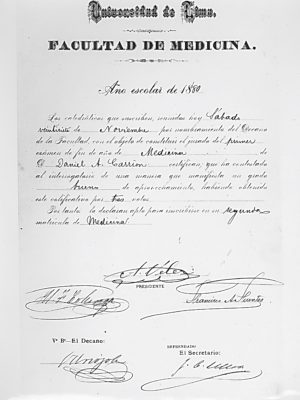 Universidad de Lima.
FACULTAD DE MEDICINA.
Año escolar de 1880
Los catedráticos que suscriben, reunidos hoy Sábado
veintisiete de Noviembre por nombramiento del Decano
de la Facultad, con el objeto de constituir el jurado del primer
exámen de fin de año de Medicina de
D. Daniel A. Carrión certifican, que ha contestado
al interrogatorio de una manera que manifiesta un grado
bueno de aprovechamiento, habiendo obtenido
este calificativo por tres votos
Por tanto lo declaran apto para inscribirse en su segunda
matrícula de Medicina
A. Vélez
PRESIDENTE
Vº Bº - El Decano:
REFRENDADO
El Secretario: